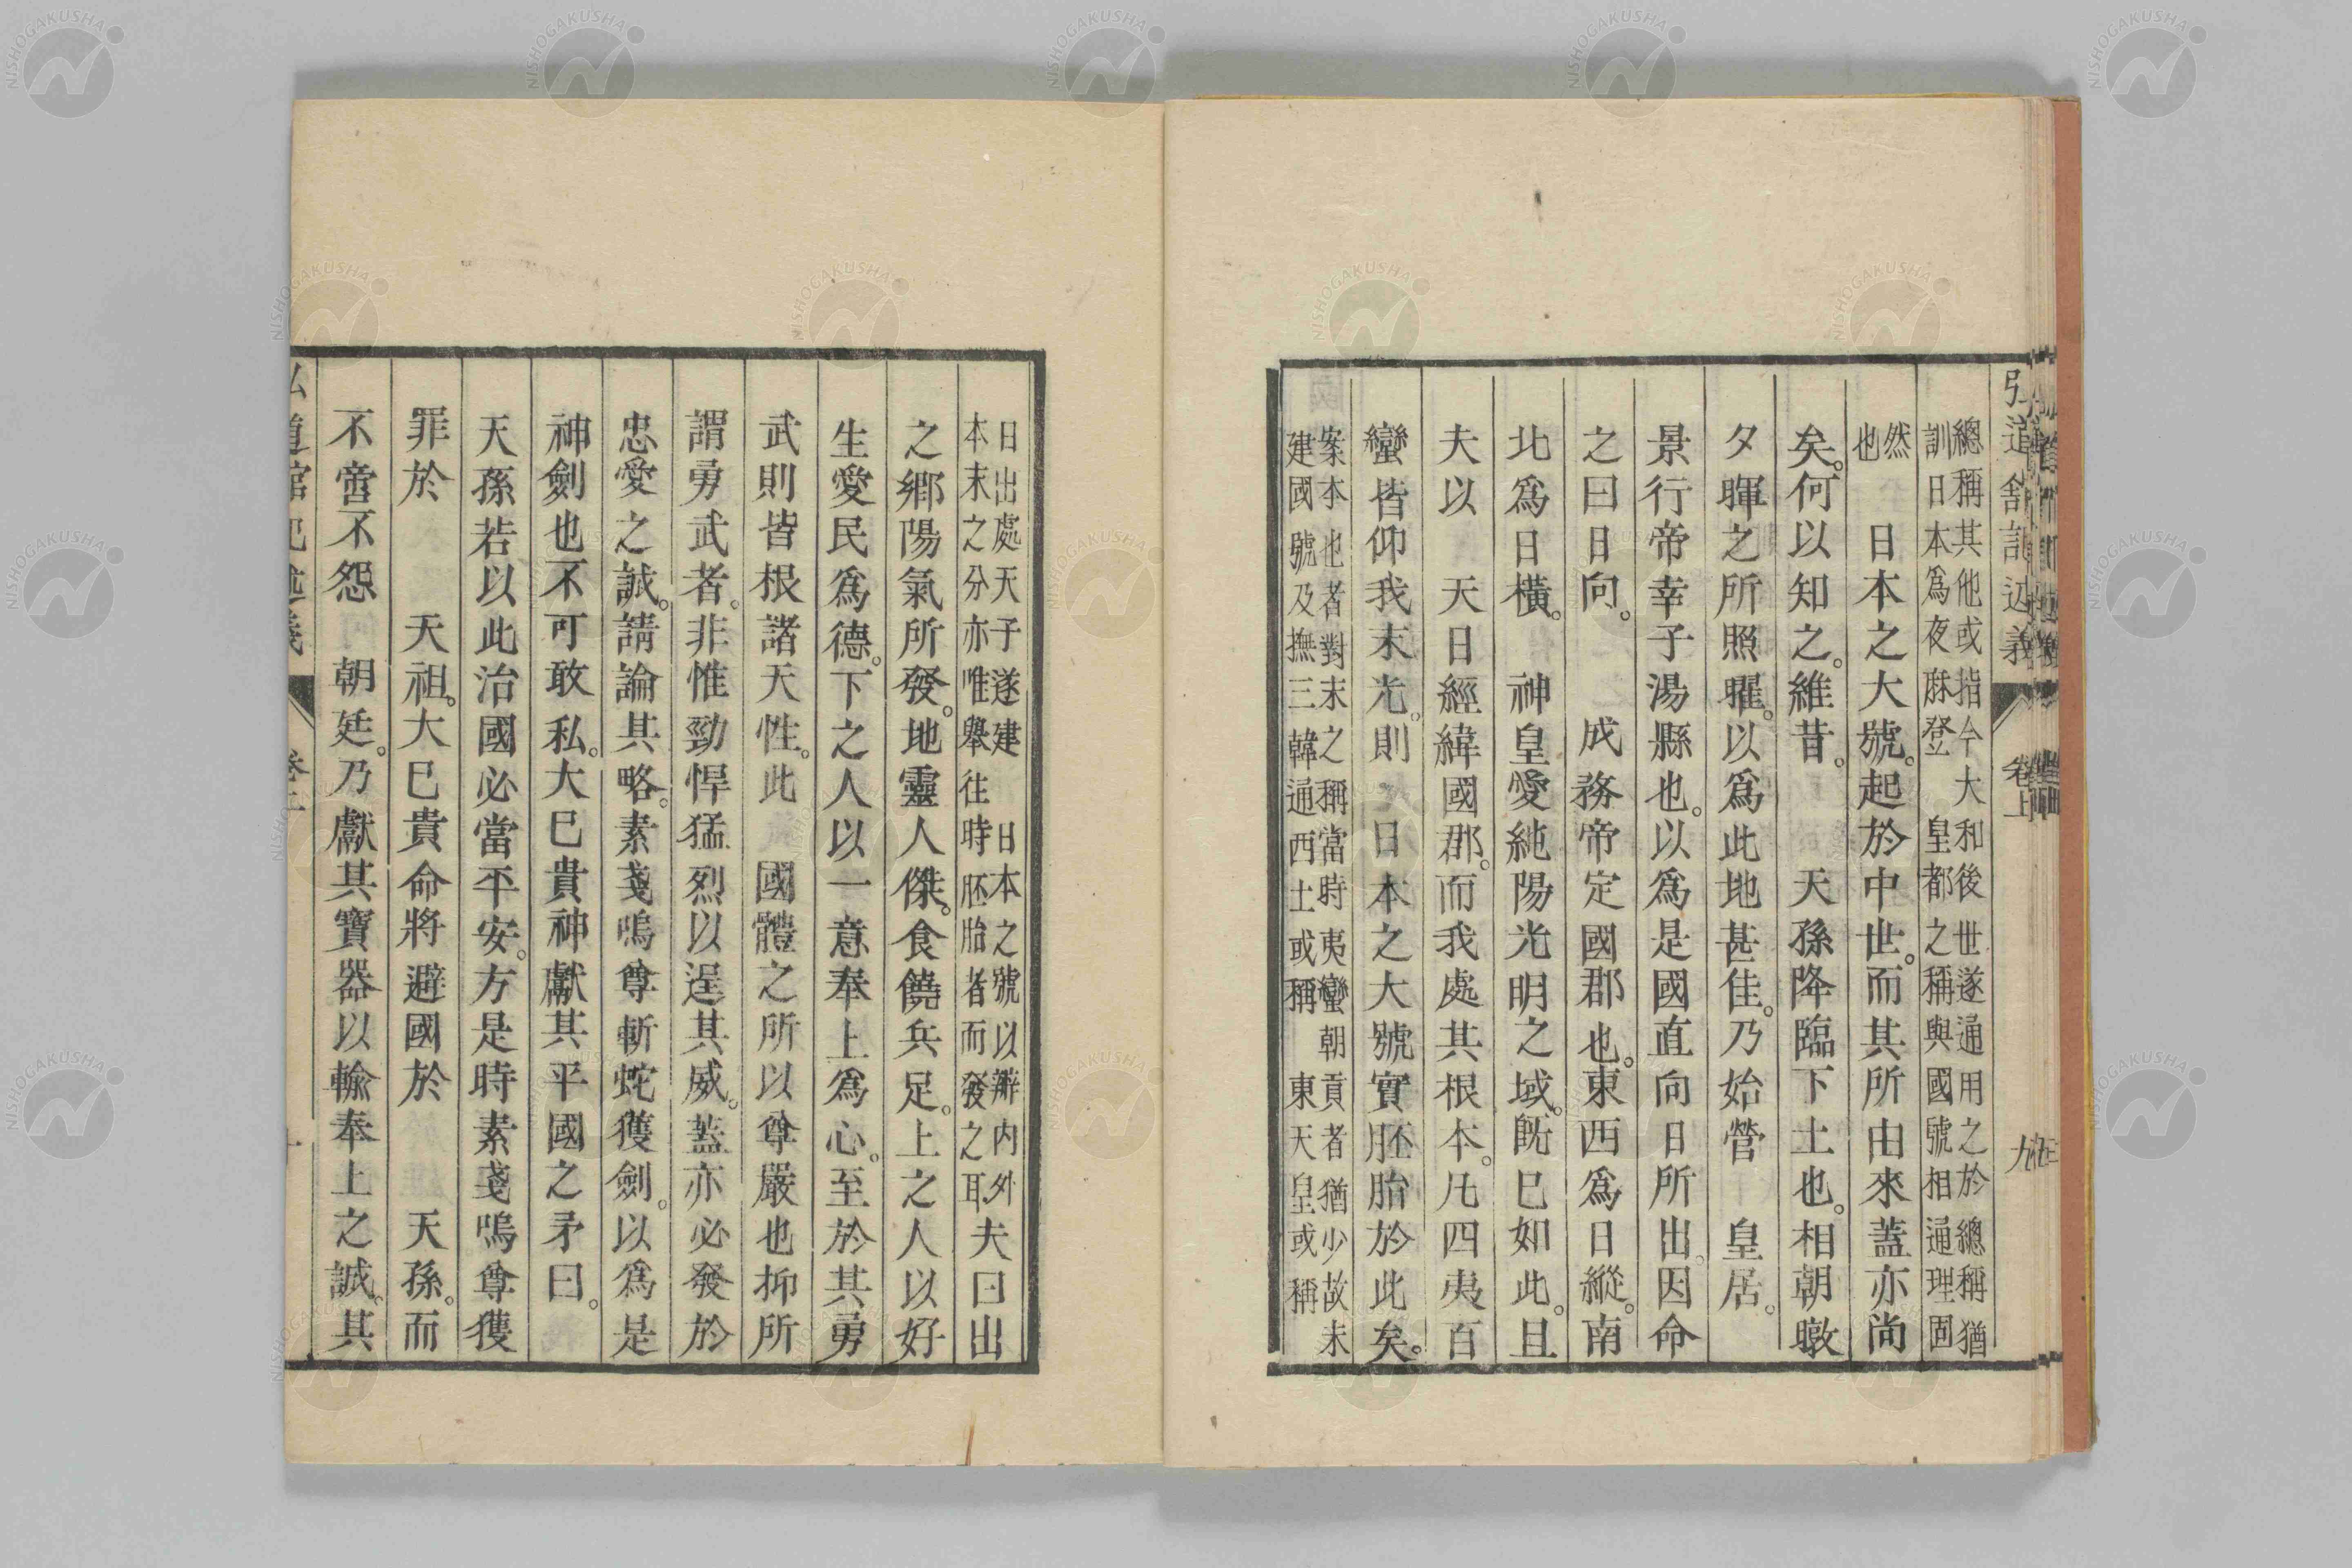 弘道館記述義
卷上
九
總稱其他或指今大和後世遂通用之於總稱猶
訓日本爲夜麻登　皇都之稱與國號相通理固
然
也
日本之大號。起於中世。而其所由來蓋亦尚
矣。何以知之。維昔。　天孫降臨下土也。相朝暾
夕暉之所照曜。以爲此地甚佳。乃始營　皇居。
景行帝幸子湯縣也。以爲是國直向日所出。因命
之曰日向。　成務帝定國郡也。東西爲日縱。南
北爲日橫。　神皇愛純陽光明之域。旣已如此。且
夫以　天日經緯國郡。而我處其根本。凡四夷百
蠻皆仰我末光。則　日本之大號實胚胎於此矣。
案本也者對末之稱當時夷蠻朝貢者猶少故未
建國號及撫三韓通西土或稱　東天皇或稱
日出處天子遂建　日本之號以辨内外
本末之分亦唯舉往時胚胎者而發之耳
夫日出
之鄉陽氣所發。地靈人傑。食饒兵足。上之人以好
生愛民爲德。下之人以一意奉上爲心。至於其勇
武則皆根諸天性。此　國體之所以尊嚴也抑所
謂勇武者。非惟勁悍猛烈以逞其威。蓋亦必發於
忠愛之誠。請論其略。素戔嗚尊斬蛇獲劍。以爲是
神劍也不可敢私。大巳貴神獻其平國之矛曰。
天孫若以此治國必當平安。方是時素戔嗚尊獲
罪於　天祖。大巳貴命將避國於　天孫。而
不啻不怨　朝廷。乃獻其寶器以輸奉上之誠。其
弘道館記述義